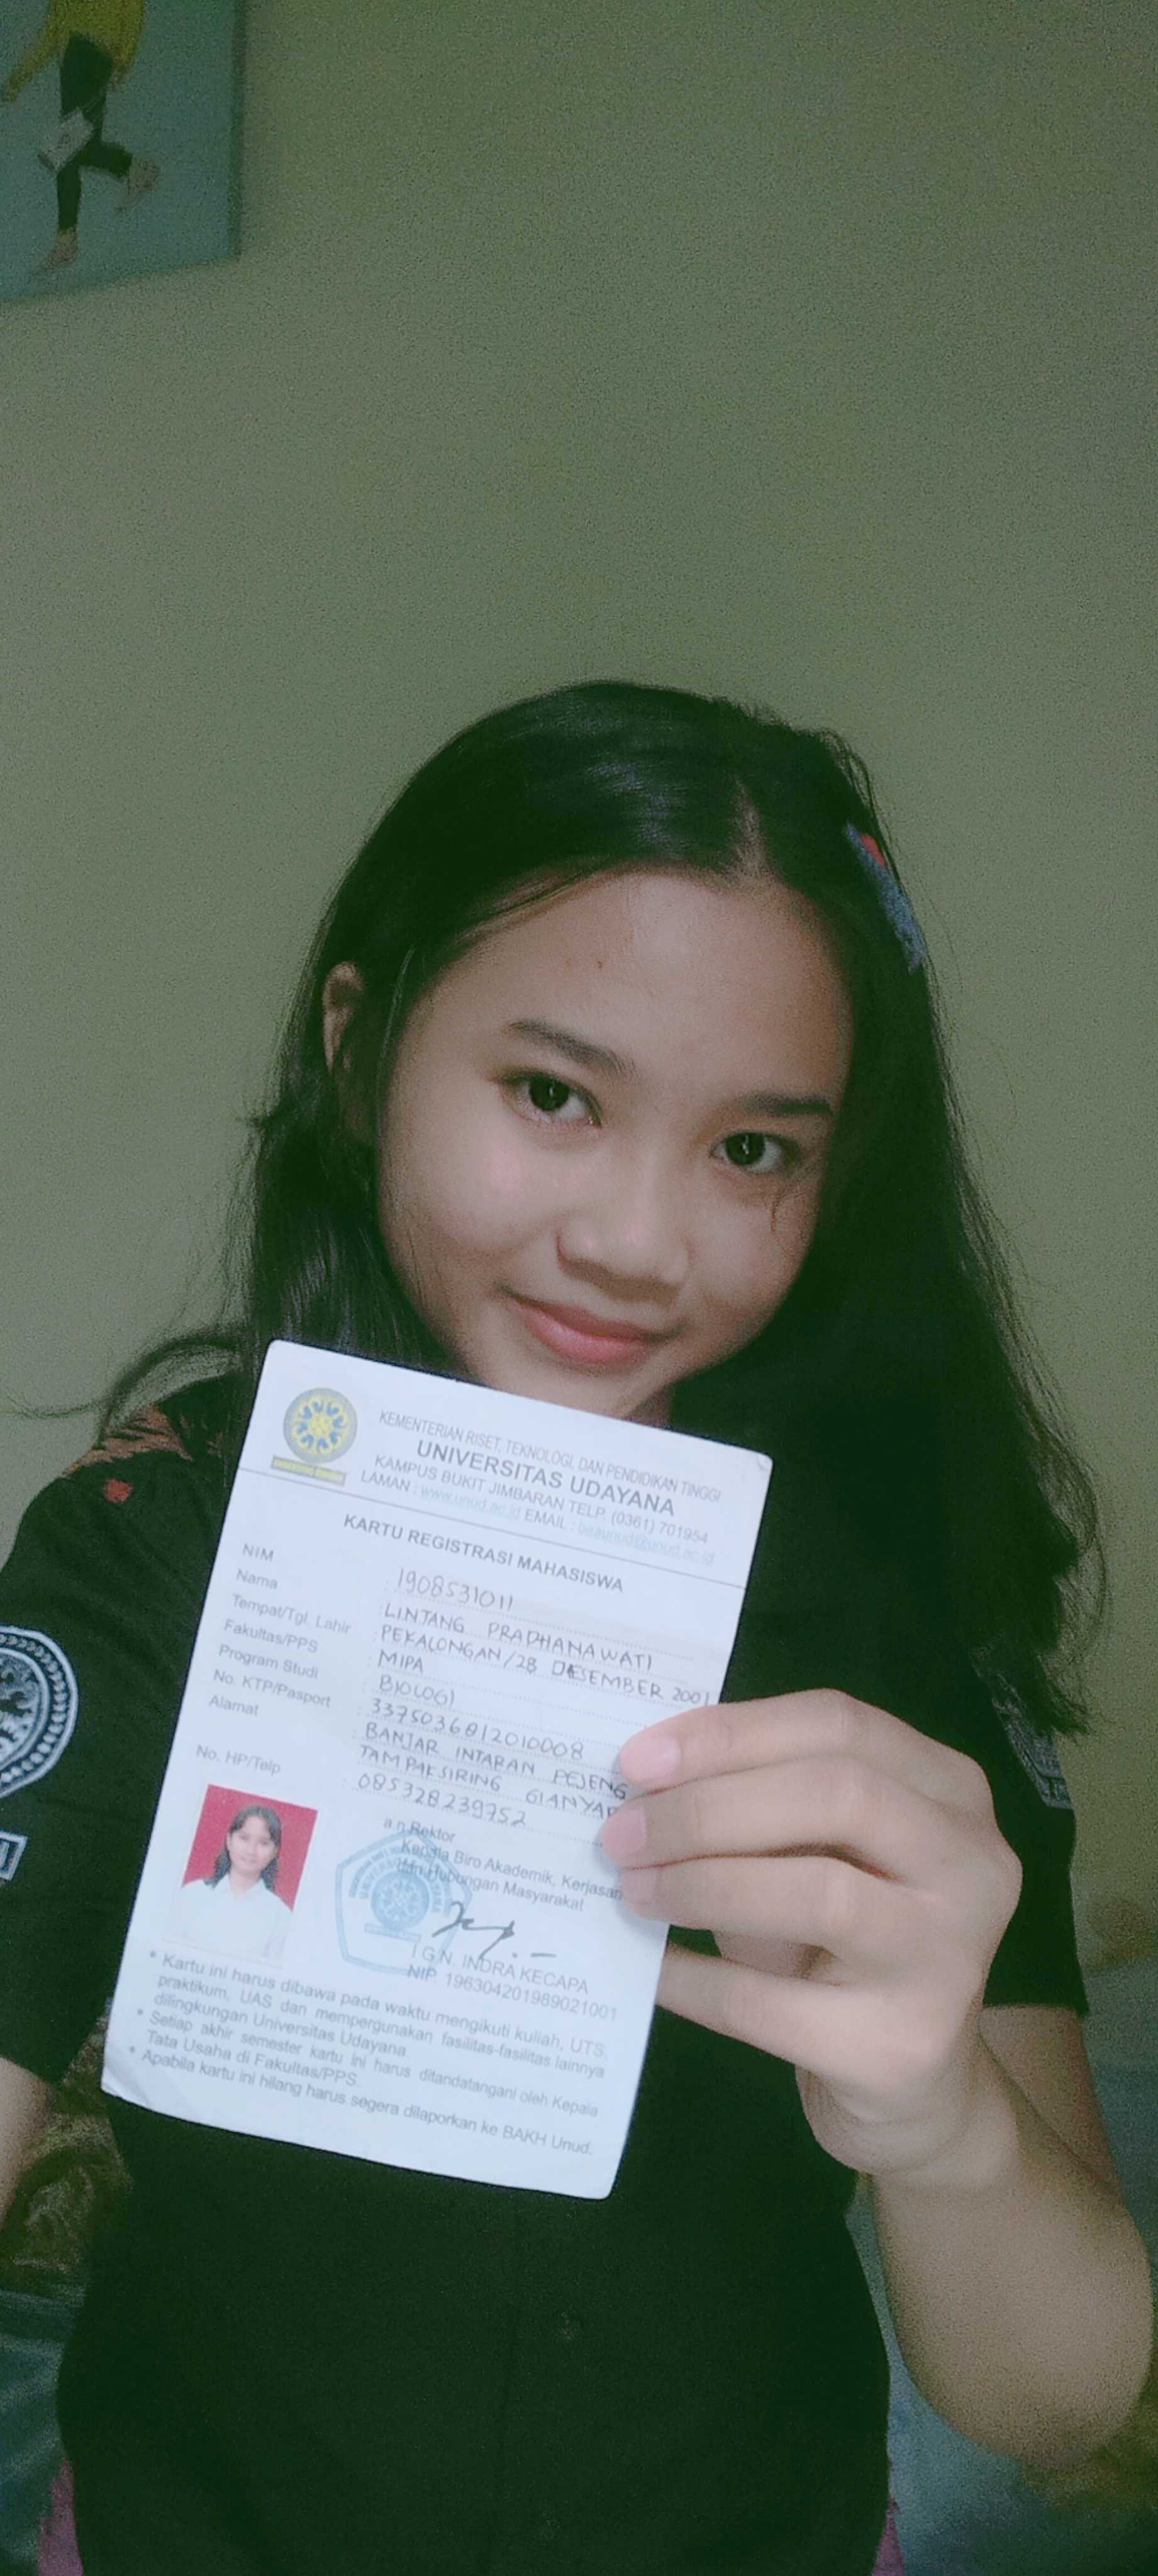 KEMENTERIAN RISET, TEKNOLOGI, DAN PENDIDIKAN TINGGI
UNIVERSITAS UDAYANA
KAMPUS BUKIT JIMBARAN TELP. (0361) 701954
LAMAN : www.unud.ac.id EMAIL :
KARTU REGISTRASI MAHASISWA
NIM : 1908531011
Nama : LINTANG PRADHANAWATI
Tempat/Tgl. Lahir : PEKALONGAN/28 DESEMBER 2001
Fakultas/PPS : MIPA
Program Studi : BIOLOGI
No. KTP/Pasport : 3375036812010008
Alamat : BANJAR INTARAN PEJENG
TAMPAKSIRING GIANYAR
No. HP/Telp : 085328239752
a.n Rektor
Kepala Biro Akademik, Kerjasam
dan Hubungan Masyarakat
I G.N. INDRA KECAPA
NIP. 196304201989021001
• Kartu ini harus dibawa pada waktu mengikuti kuliah, UTS,
praktikum, UAS dan mempergunakan fasilitas-fasilitas lainnya
dilingkungan Universitas Udayana.
• Setiap akhir semester kartu ini harus ditandatangani oleh Kepala
Tata Usaha di Fakultas/PPS.
• Apabila kartu ini hilang harus segera dilaporkan ke BAKH Unud.